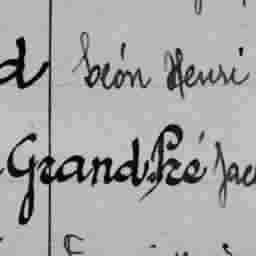 d Léon Henri
GrandPré Jac